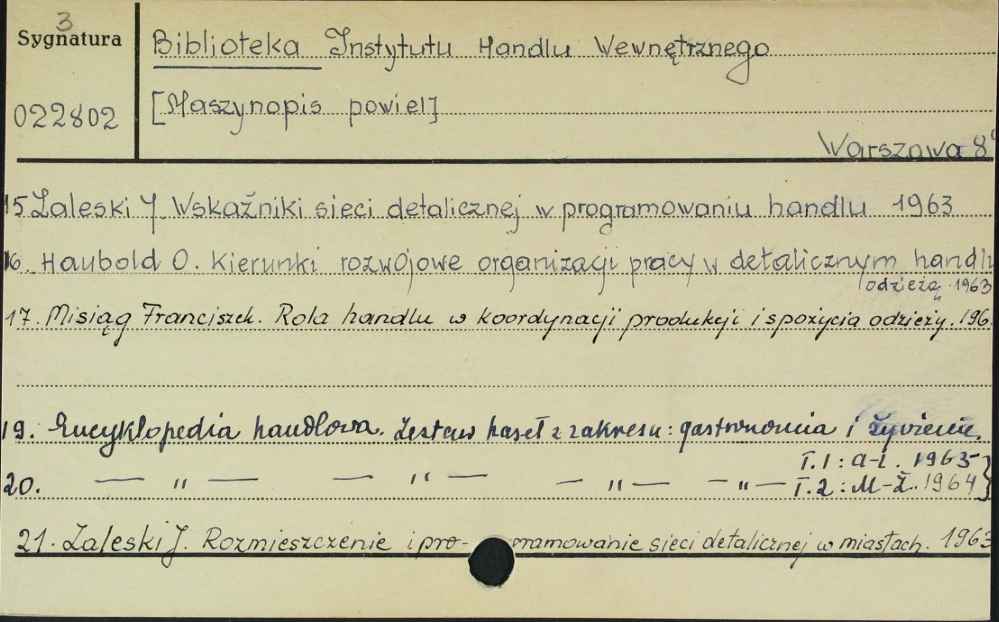 3
Sygnatura
Biblioteka Instytutu Handlu Wewnętrznego
022802
[Maszynopis powiel]
Warszawa 8°
15 Zaleski J. Wskaźniki sieci detalicznej w programowaniu handlu 1963
16. Haubold O. Kierunki rozwojowe organizacji pracy w detalicznym handlu
odzieżą 1963
17. Misiąg Franciszek. Rola handlu w koordynacji produkcji i spożycia odzieży. 196
19. Encyklopedia handlowa. Zestaw haseł z zakresu: gastronomia i żywienie.
T.1: A-Ł. 1963
20. — „ — — „ — — „ — — „ — T.2: M-Ż. 1964
21. Zaleski J. Rozmieszczenie i pro- gramowanie sieci detalicznej w miastach. 1963